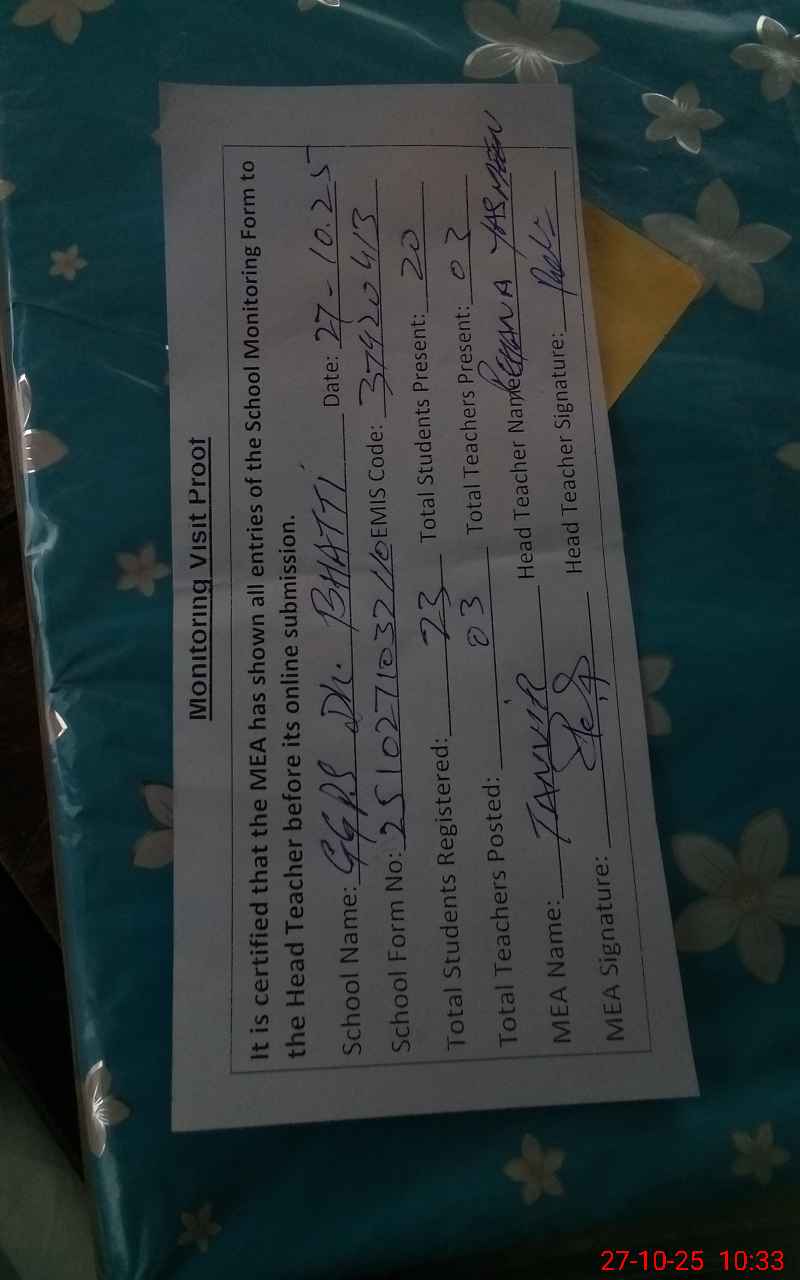 Monitoring Visit Proof
It is certified that the MEA has shown all entries of the School Monitoring Form to
the Head Teacher before its online submission.
School Name: GGPS Dh. BHATTI Date: 27-10.25
School Form No: 2510271032110 EMIS Code: 37420413
Total Students Registered: 23 Total Students Present: 20
Total Teachers Posted: 03 Total Teachers Present: 03
MEA Name: TANVIR Head Teacher Name: REHANA YASMEEN
MEA Signature: Head Teacher Signature:
27-10-25 10:33